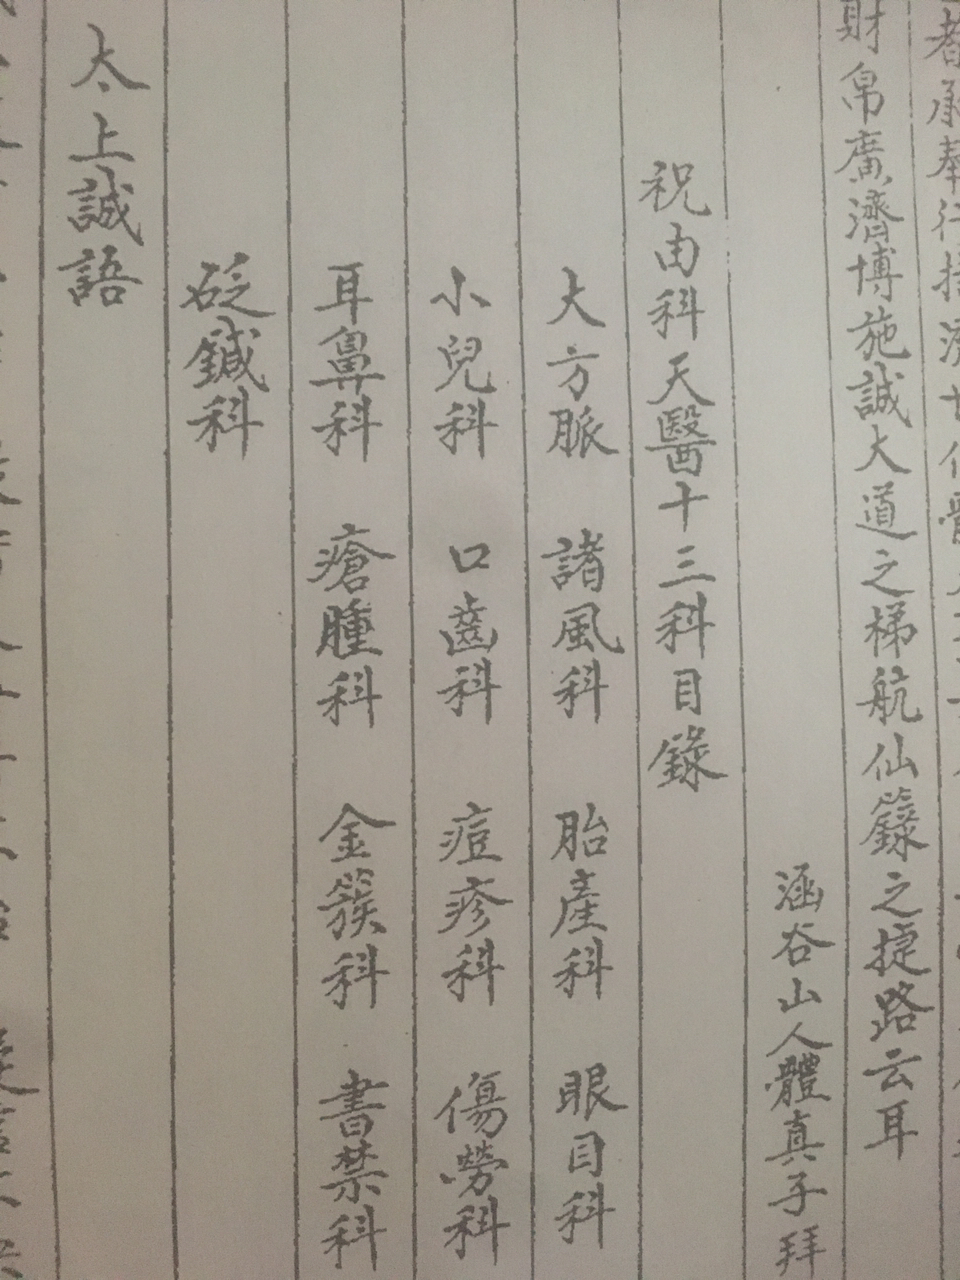 者承奉行
財帛廣濟博施誠大道之梯航仙籙之捷路云耳
涵谷山人體真子拜
祝由科天醫十三科目錄
大方脈 諸風科 胎產科 眼目科
小兒科 口齒科 痘疹科 傷勞科
耳鼻科 瘡腫科 金簇科 書禁科
砭鍼科
太上誠語